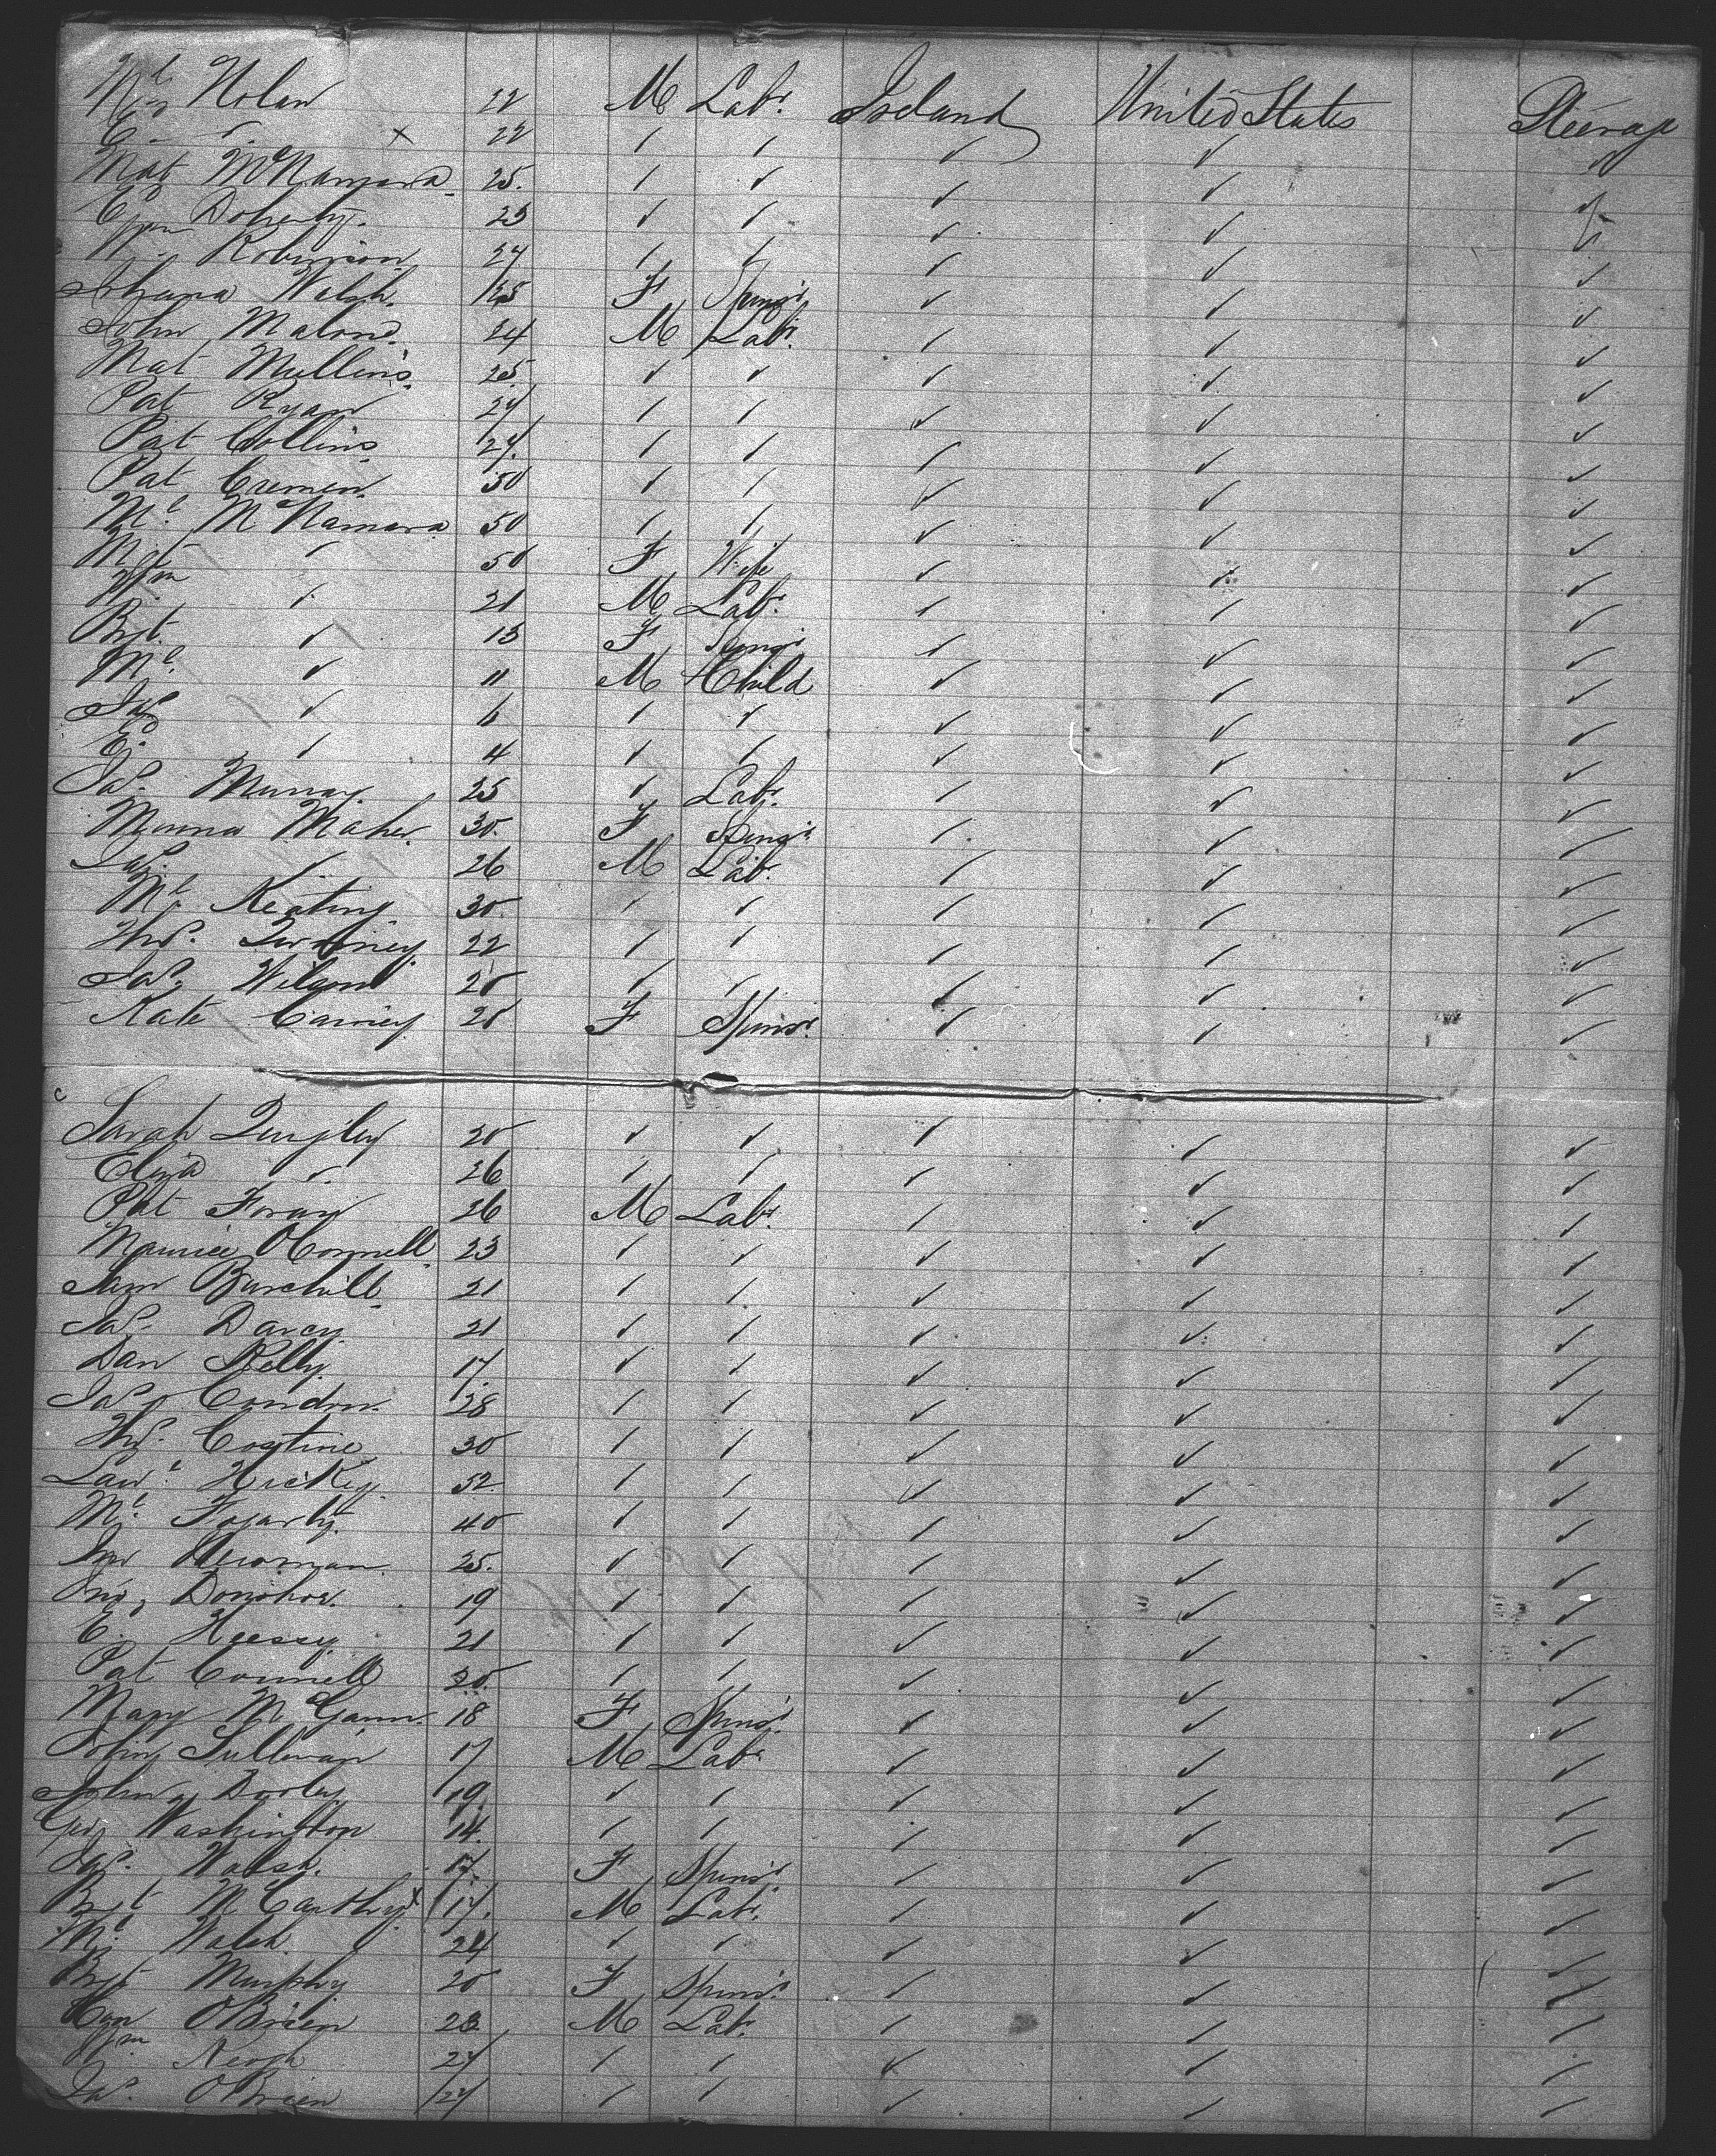 Nolan 22 M Lab^r. Ireland United States Steerage
✓ × 22 ✓ ✓ ✓ ✓ ✓
Mat McNamara 25. ✓ ✓ ✓ ✓ ✓
Doherty. 23 ✓ ✓ ✓ ✓ ✓
W^m Robinson 27 ✓ ✓ ✓ ✓ ✓
Johana Walsh. 25 F Spins^r ✓ ✓ ✓
John Malone. 24 M Lab^r. ✓ ✓ ✓
Mat Mullins. 25 ✓ ✓ ✓ ✓ ✓
Pat Ryan 27 ✓ ✓ ✓ ✓ ✓
Pat Collins 27. ✓ ✓ ✓ ✓ ✓
Pat Cremin. 50 ✓ ✓ ✓ ✓ ✓
M^l. McNamara 50 ✓ ✓ ✓ ✓ ✓
Mgt ✓ 50 F Wife ✓ ✓ ✓
W^m ✓ 21 M Lab^r. ✓ ✓ ✓
Bgt. ✓ 13 F Spins^r ✓ ✓ ✓
M^l. ✓ 11 M Child ✓ ✓ ✓
Ja^s ✓ 6 ✓ ✓ ✓ ✓ ✓
✓ 4 ✓ ✓ ✓ ✓ ✓
Ja^s. Murray. 25 ✓ Lab^r. ✓ ✓ ✓
Maher. 30. F Spins^r ✓ ✓ ✓
Ja^s. ✓ 26 M Lab^r. ✓ ✓ ✓
M^l. Keating. 30. ✓ ✓ ✓ ✓ ✓
Tho^s. 22 ✓ ✓ ✓ ✓ ✓
Ja^s. Wilson 20 ✓ ✓ ✓ ✓ ✓
Kate Carney 20 F Spins^r. ✓ ✓ ✓
Sarah Quigley 20 ✓ ✓ ✓ ✓ ✓
Eliza ✓ 26 ✓ ✓ ✓ ✓ ✓
Pat Foran 26 M Lab^r. ✓ ✓ ✓
Maurice OConnell 23 ✓ ✓ ✓ ✓ ✓
Sam Burchill 21 ✓ ✓ ✓ ✓ ✓
Ja^s. Darcy 21 ✓ ✓ ✓ ✓ ✓
Dan Kelly 17. ✓ ✓ ✓ ✓ ✓
Ja^s. Condon. 28 ✓ ✓ ✓ ✓ ✓
Tho^s. Costine 30 ✓ ✓ ✓ ✓ ✓
Law^e. Hickey. 32 ✓ ✓ ✓ ✓ ✓
M^l. Fogarty. 40 ✓ ✓ ✓ ✓ ✓
Jno Newman. 25. ✓ ✓ ✓ ✓ ✓
Jno. Donohoe. 19 ✓ ✓ ✓ ✓ ✓
C. 21 ✓ ✓ ✓ ✓ ✓
Pat Connell 20. ✓ ✓ ✓ ✓ ✓
Mary McGann. 18 F Spins^r. ✓ ✓ ✓
John Sullivan 17 M Lab^r ✓ ✓ ✓
John Dooley 19 ✓ ✓ ✓ ✓ ✓
Geo. Washington 14. ✓ ✓ ✓ ✓ ✓
Walsh. 17. F Spins^r. ✓ ✓ ✓
Bgt McCarthy × 17. M Lab^r. ✓ ✓ ✓
M^l. Walsh. 24 ✓ ✓ ✓ ✓ ✓
Bgt Murphy 20 F Spins^r. ✓ ✓ ✓
OBrien 23 M Lab^r. ✓ ✓ ✓
W^m Keogh 27 ✓ ✓ ✓ ✓ ✓
Ja^s. OBrien 27 ✓ ✓ ✓ ✓ ✓